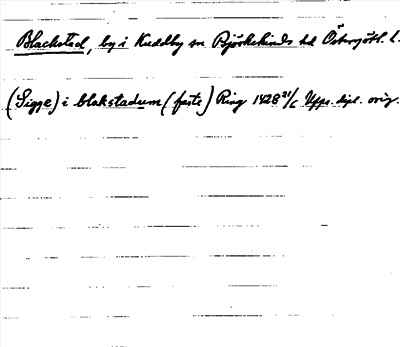 Blackstad, by i Kuddby sn Björkekinds hd Östergötl. l.
(Sigge) i blakstadum (faste) Ring 1428 21/6 Upps. dipl. orig.